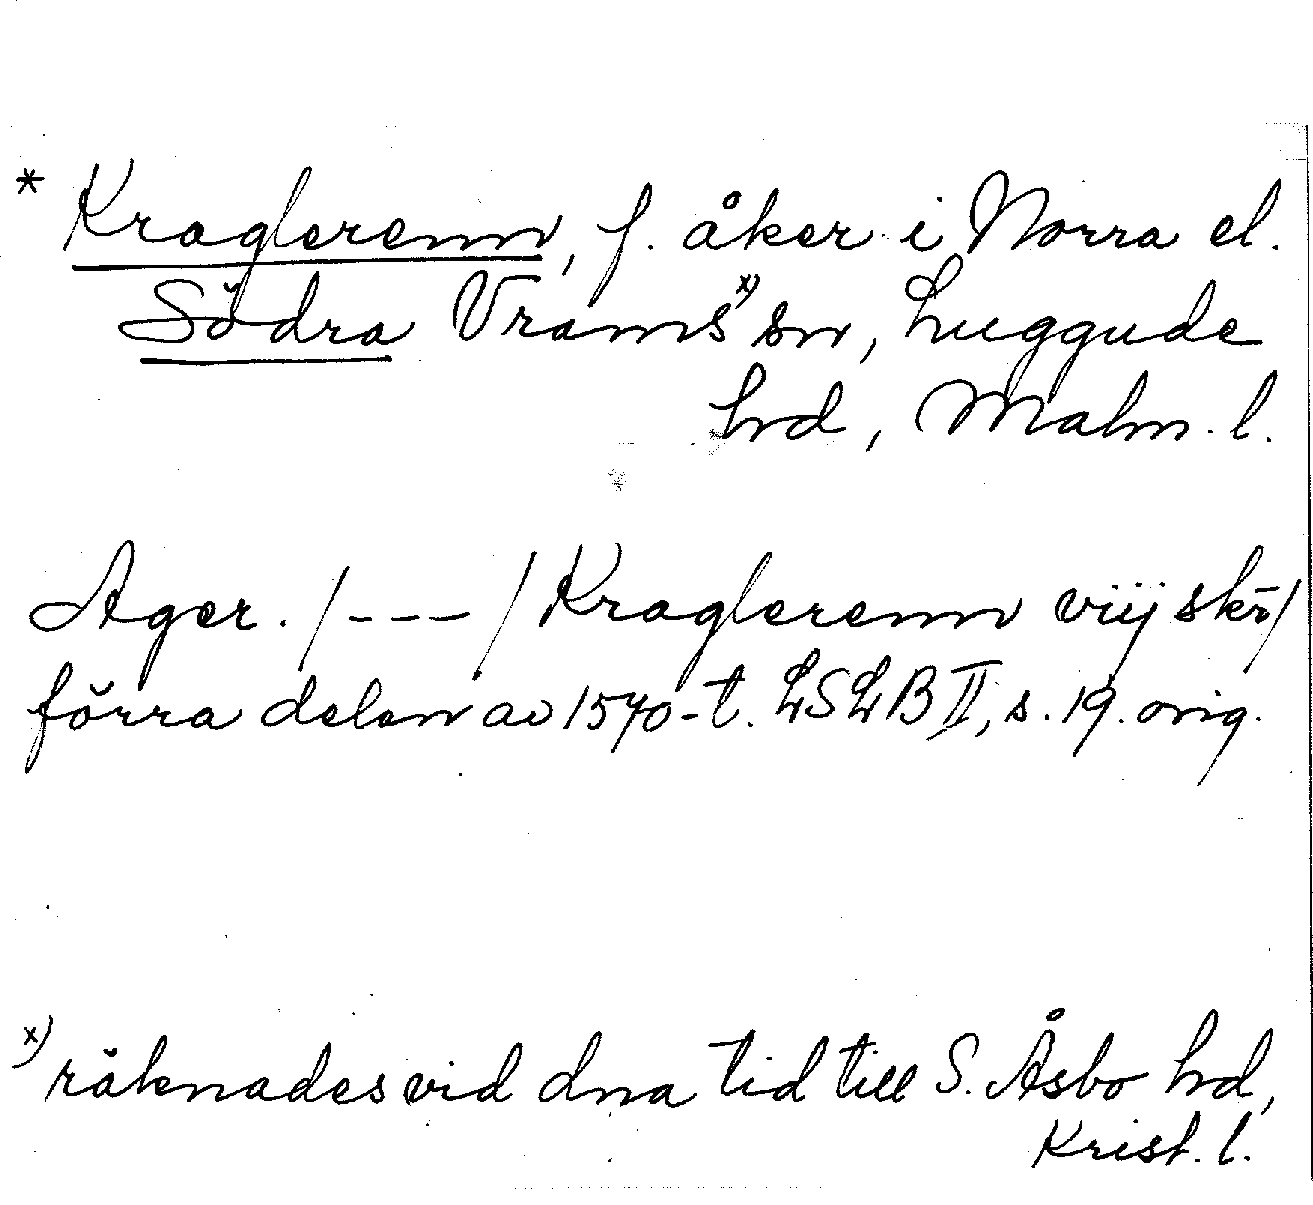 * Kraglerenn, f. åker i Norra el.
Södra Vrams x) sn, Luggude
hrd, Malm. l.
Ager. /---/ Kraglerenn viij skr̄/
förra delen av 1570-t. LSLB II, s. 19. orig.
x) räknades vid dna tid till S. Åsbo hrd,
Krist. l.